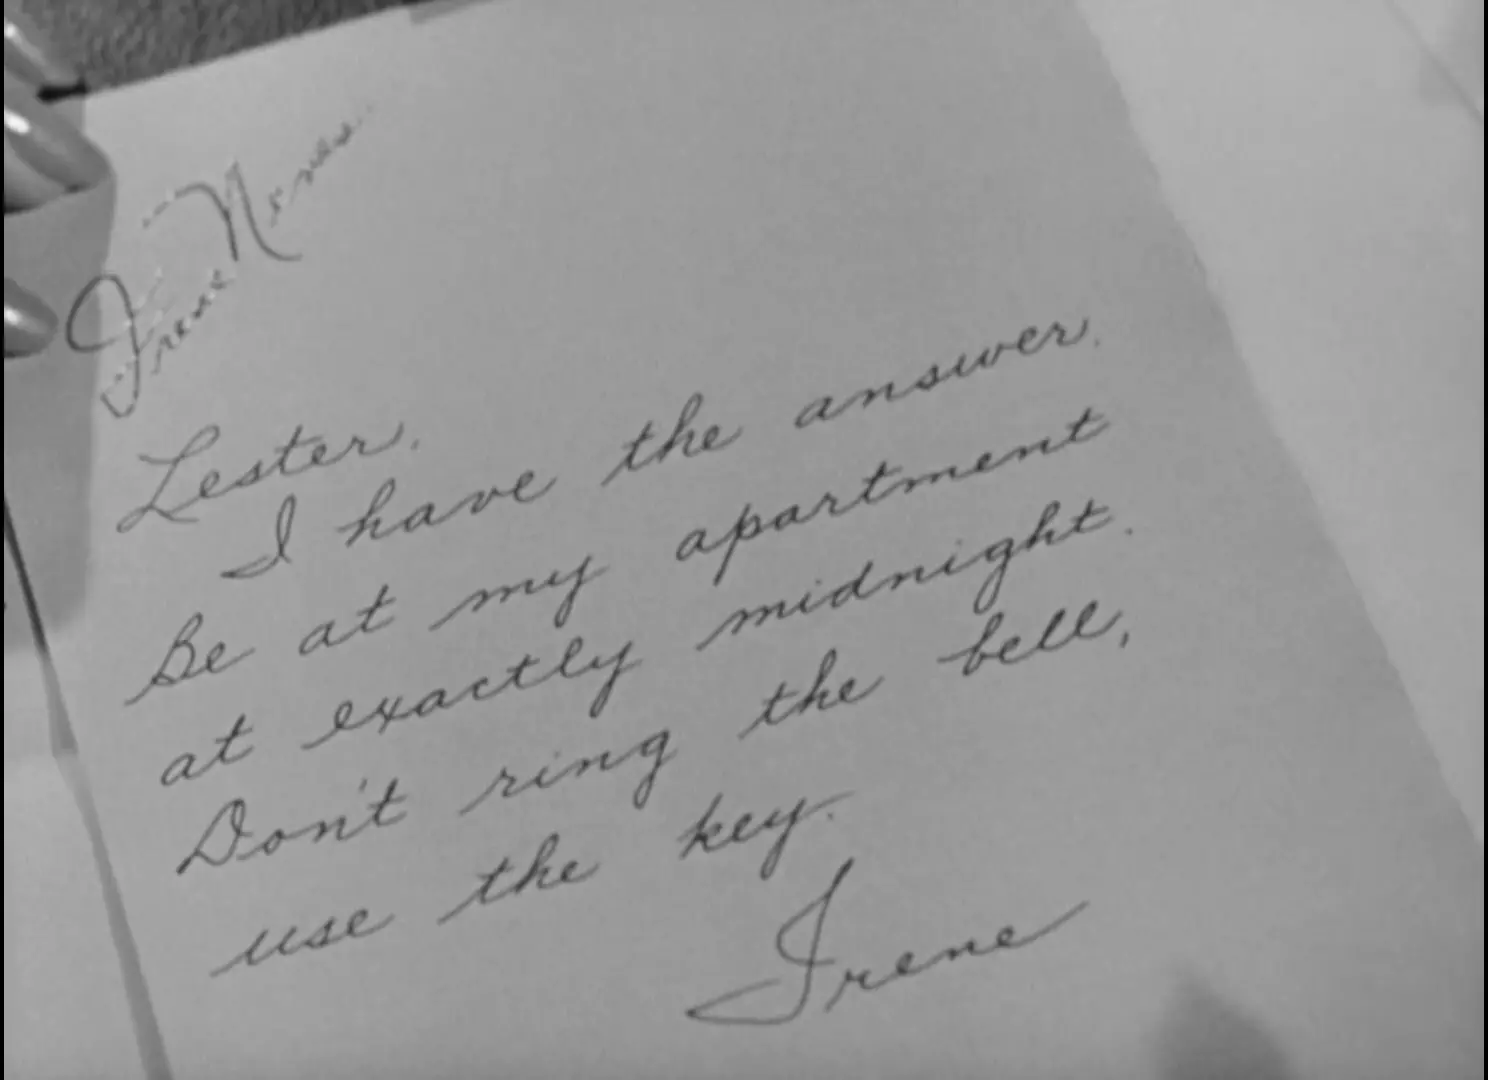 Irene Neves
Lester.
I have the answer.
Be at my apartment
at exactly midnight.
Don't ring the bell,
use the key.
Irene